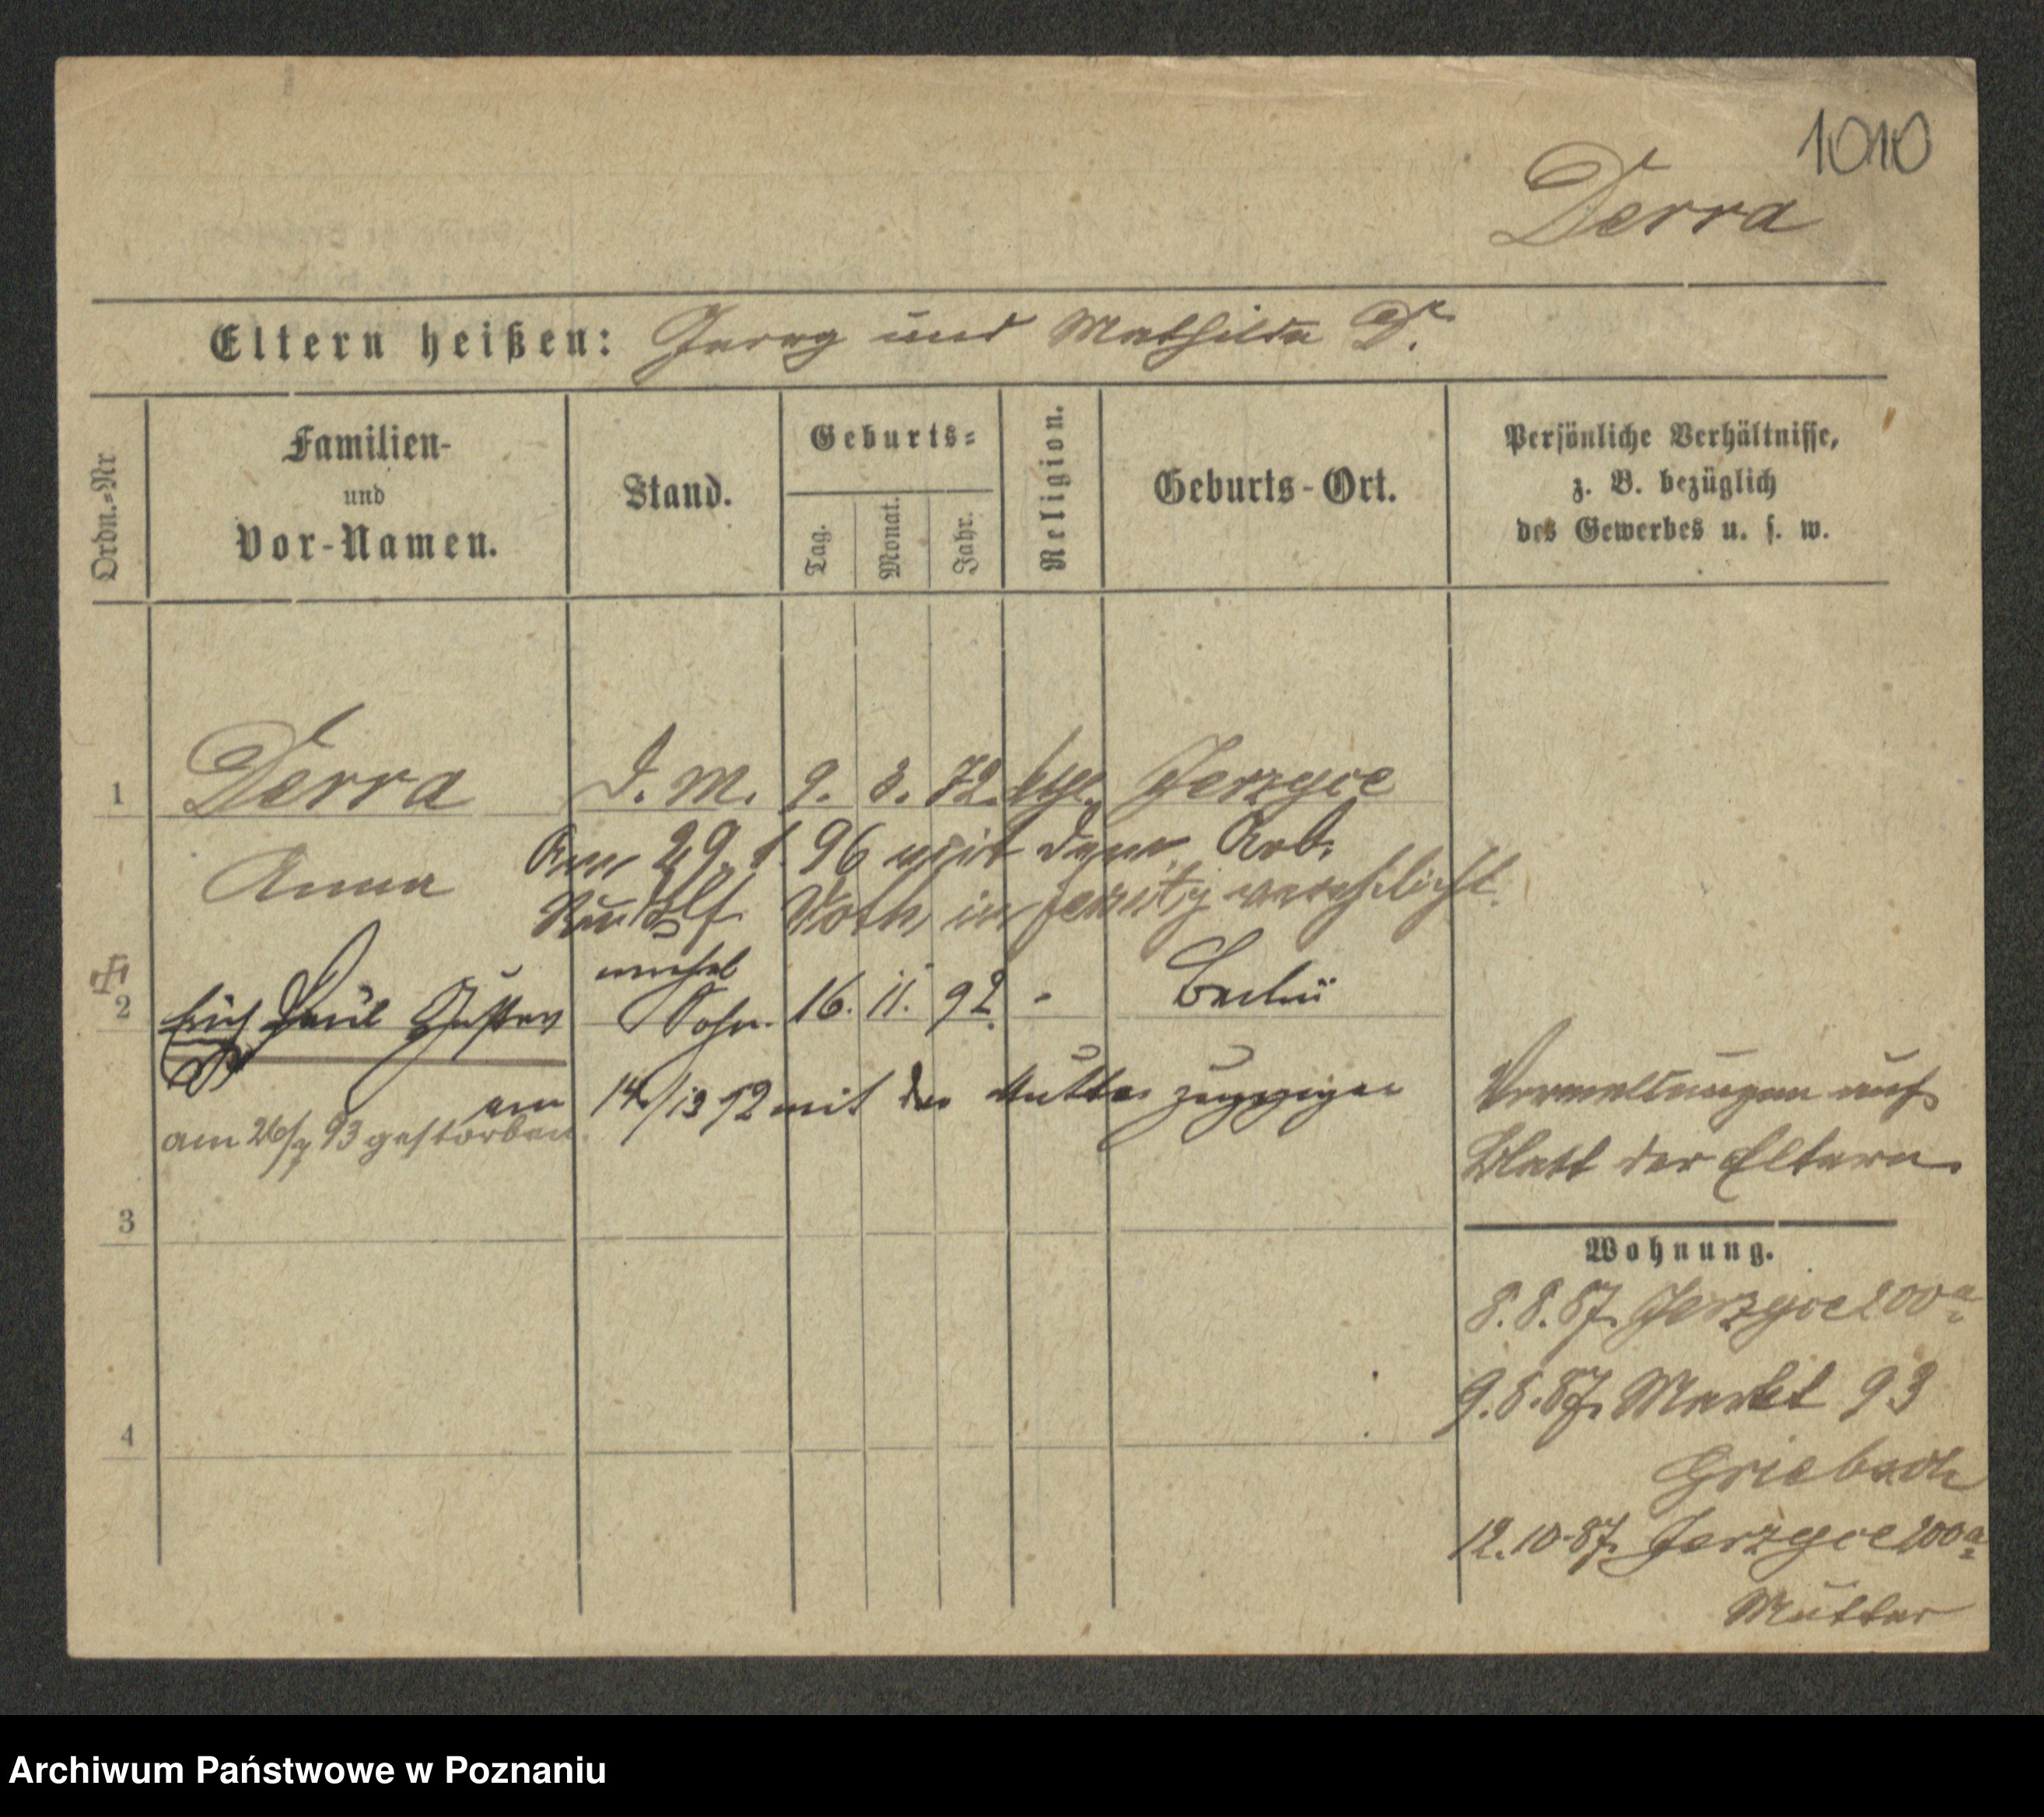 1010
Derra
Eltern heißen: Georg und Mathilde D.
Ordn.-Nr.
Familien-
und
Vor-Namen.
Stand.
Geburts-
Tag.
Monat.
Jahr.
Religion.
Geburts-Ort.
Persönliche Verhältnisse,
z. B. bezüglich
des Gewerbes u. s. w.
1 Derra D. M. 9. 3. 72. kth. Jerzyce
Anna
Am 29. 1. 96 mit dem Arb.
Rudolf Voth in Jersitz verehelicht.
unehel
2 Erich Paul Gustav Sohn. 16. 11. 92. - Berlin
am 14/12 92 mit der Mutter zugezogen
am 26/7 93 gestorben.
Vermeldungen auf
Blatt der Eltern.
3
Wohnung.
8.8.87. Jerzyce 200a
9.8.87. Markt 93
Griebsch
4
12.10.87. Jerzyce 200a
Mutter
Archiwum Państwowe w Poznaniu